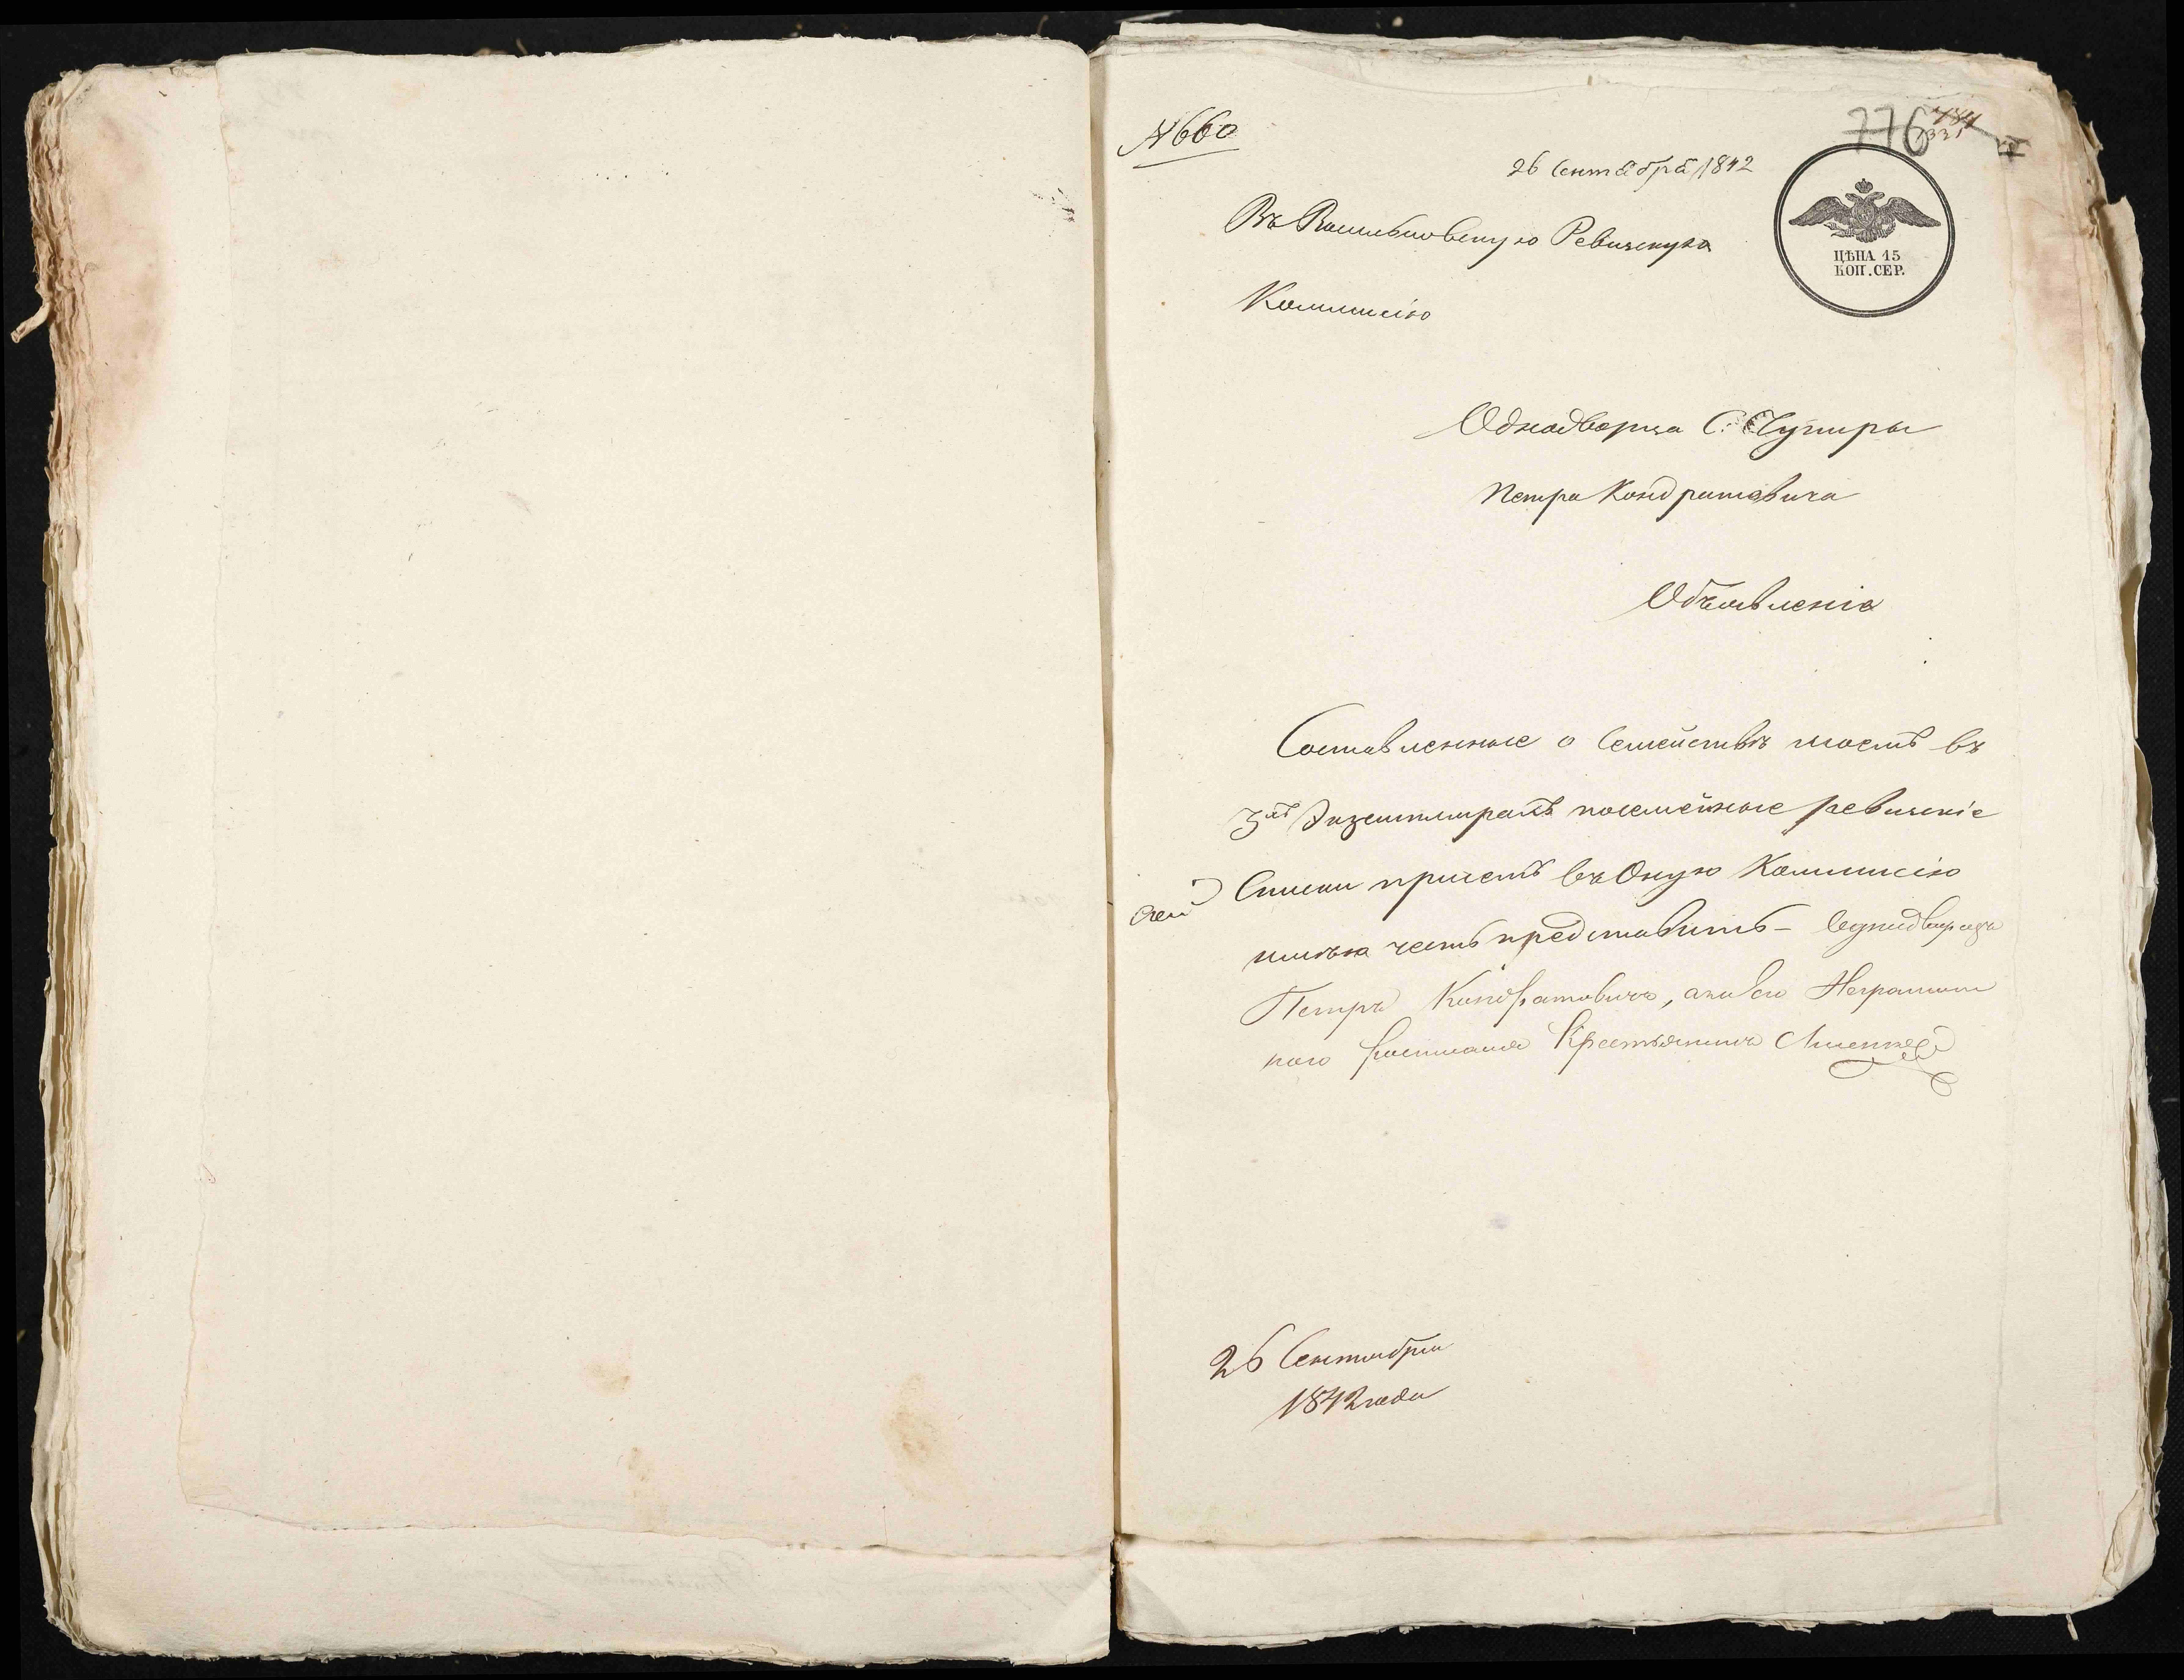 № 660
776
26 Сентября 1842
ЦѢНА 15
КОП. СЕР.
Въ Васильковскую Ревизскую
Коммисію
Однодворца С. Чупиры
Петра Кондратовича
Объявленіе
Составленные о Семействѣ моемъ въ
3хъ Экземплярахъ посемейные ревизскіе
Списки при семъ въ Оную Коммисію
имѣю честь представить – Однодворецъ
Петръ Кондратовичъ, а за его Неграмот
наго росписался Крестьянинъ
26 Сентября
1842 года